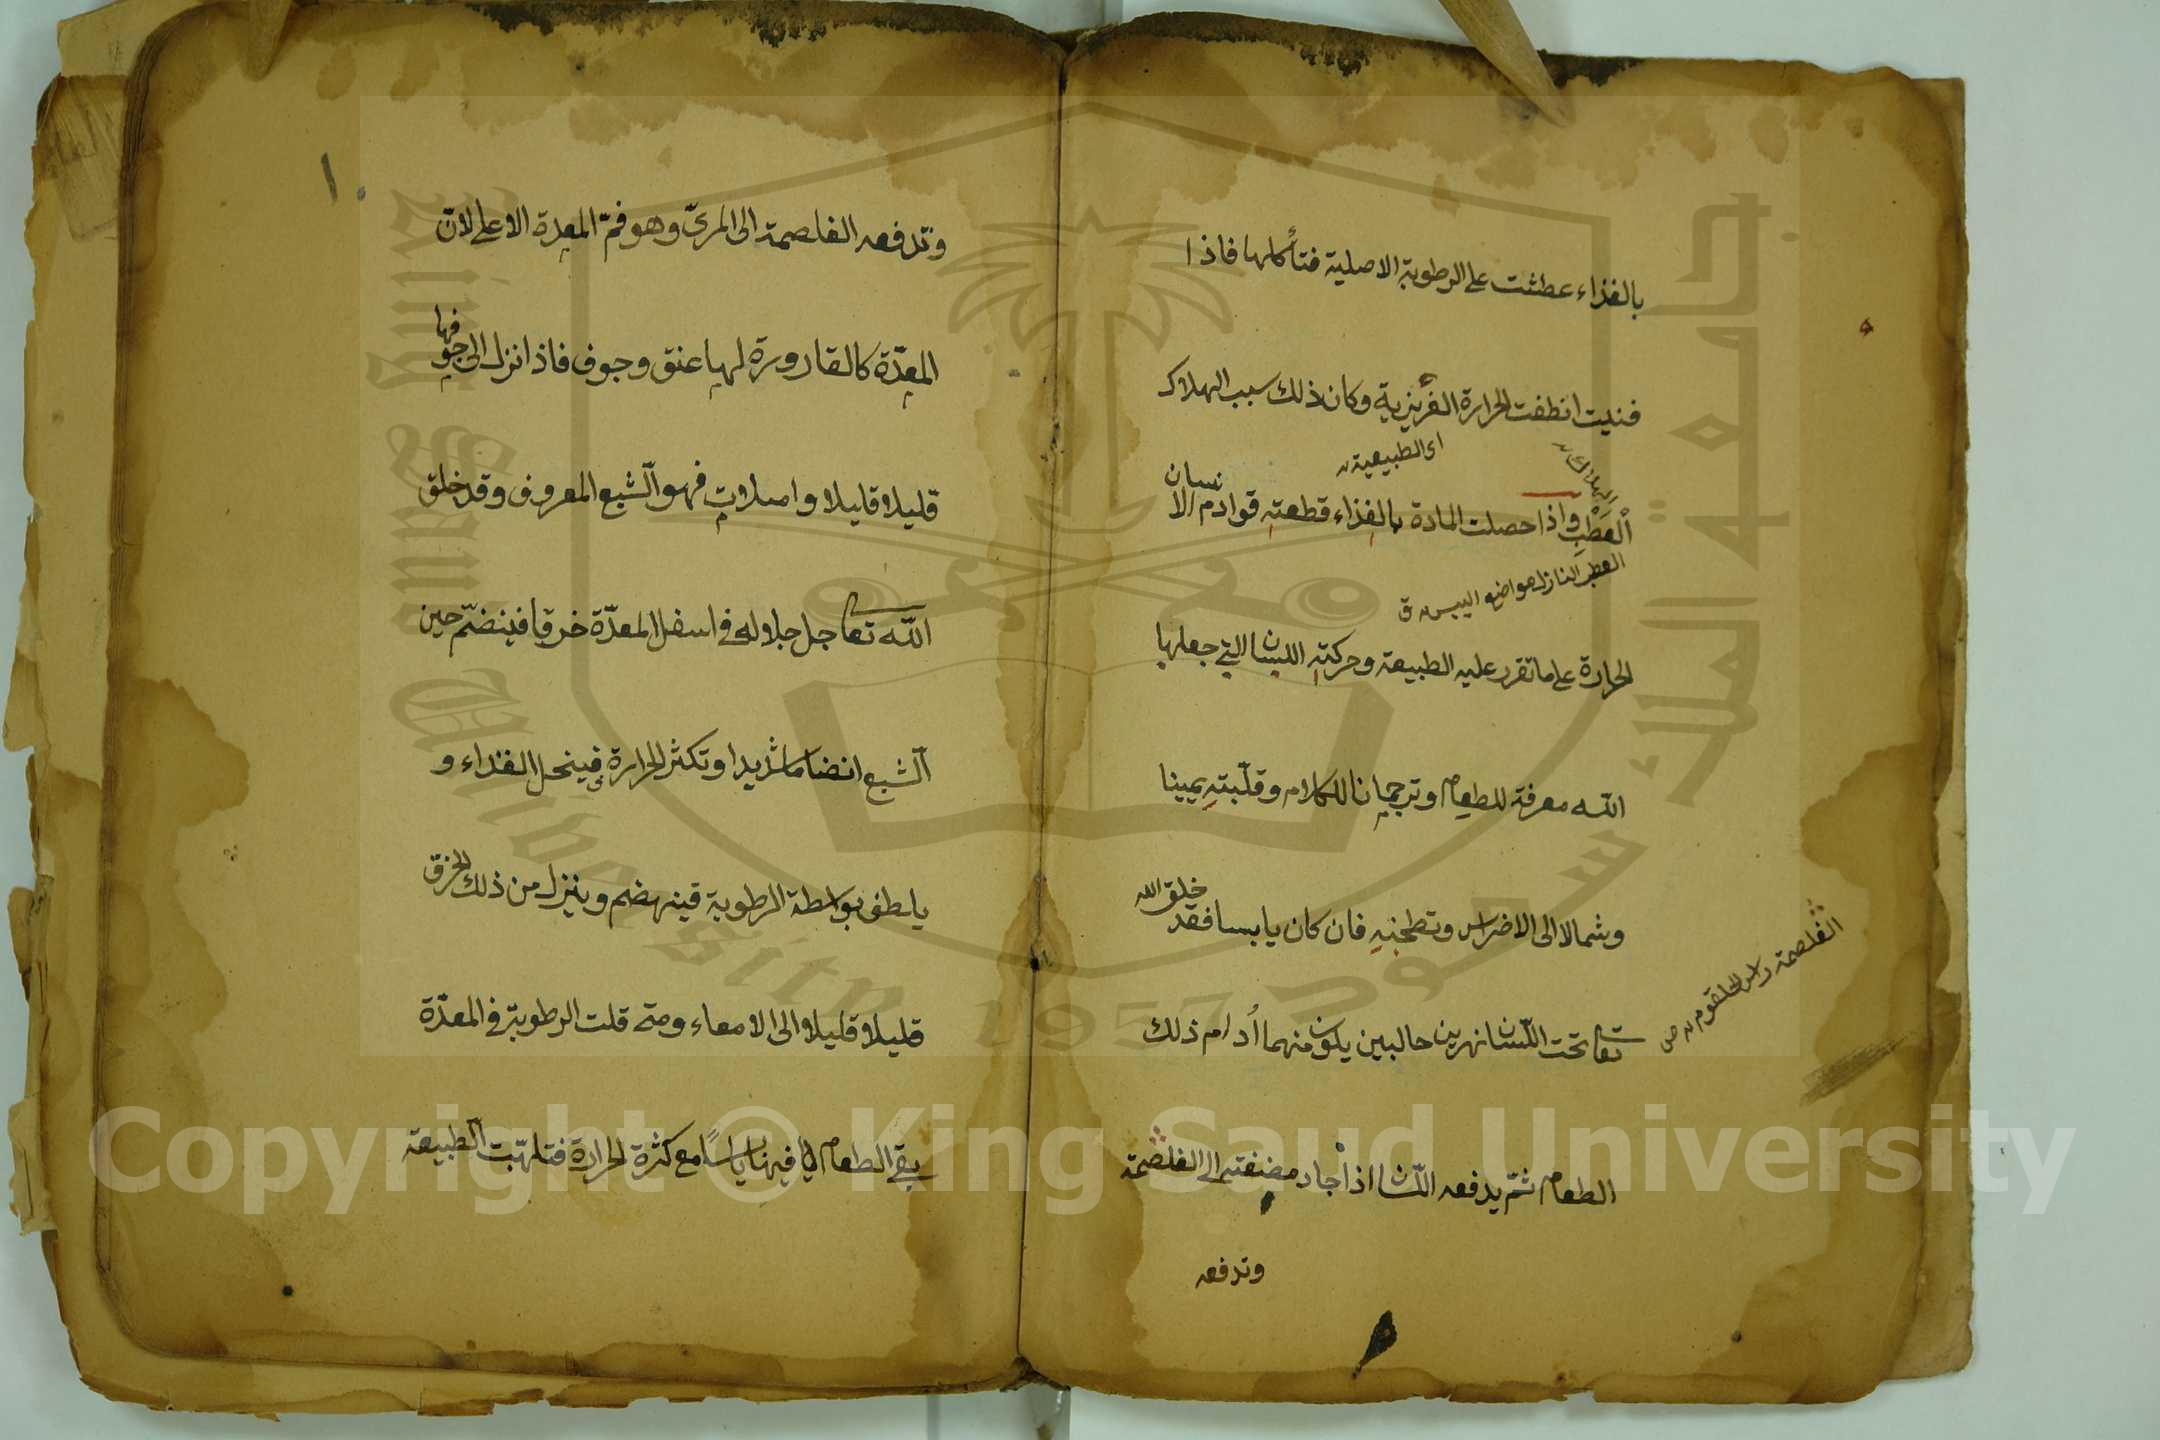 بالغذاء عطفت على الرطوبة الاصلية فتأكلها فاذا
فنيت انطفت الحرارة الغريزية وكان ذلك سبب الهلاك
اى الطبيعية
الهلاك
العَطَب واذا حصلت المادة بالغذاء قطعته قوادم الا
نسان
الحرارة على ما تقرر عليه الطبيعة وحركته اللسان التي جعلها
الله معرفة للطعام وترجمانا للكلام وقلّبته يمينا
وشمالا الى الاضراس وتطحنه فان كان يابسا فقد خلق الله
تعا تحت اللّسان نهرين حالبين يكون منهما أدام ذلك
الغلصمة راس الحلقوم
الطعام ثمّ يدفعه اللّسا اذا أجاد مضغته الى الغلصمة
وتدفعه
١٠
وتدفعه الغلصمة الى المرىّ وهو فمّ المعدة الاعلى لانّ
المعدّة كالقارورة لها عنق وجوف فاذا نزل الى جوفها
قليلا قليلا وامتلات فهو الشبع المعروف وقد خلق
الله تعا جل جلاله في اسفل المعدّة خرقا فينضمّ حين
الشبع انضماما شديدا وتكثر الحرارة فينحل الغذاء و
يلطف بواسطة الرطوبة فينهضم وينزل من ذلك الخرق
قليلا قليلا الى الامعاء ومتى قلت الرطوبة في المعدّة
يبقى الطعام فيها يابسًا مع كثرة الحرارة فتلهّبت الطبيعة
Copyright © King Saud University
جامعة الملك سعود
King Saud University
1957